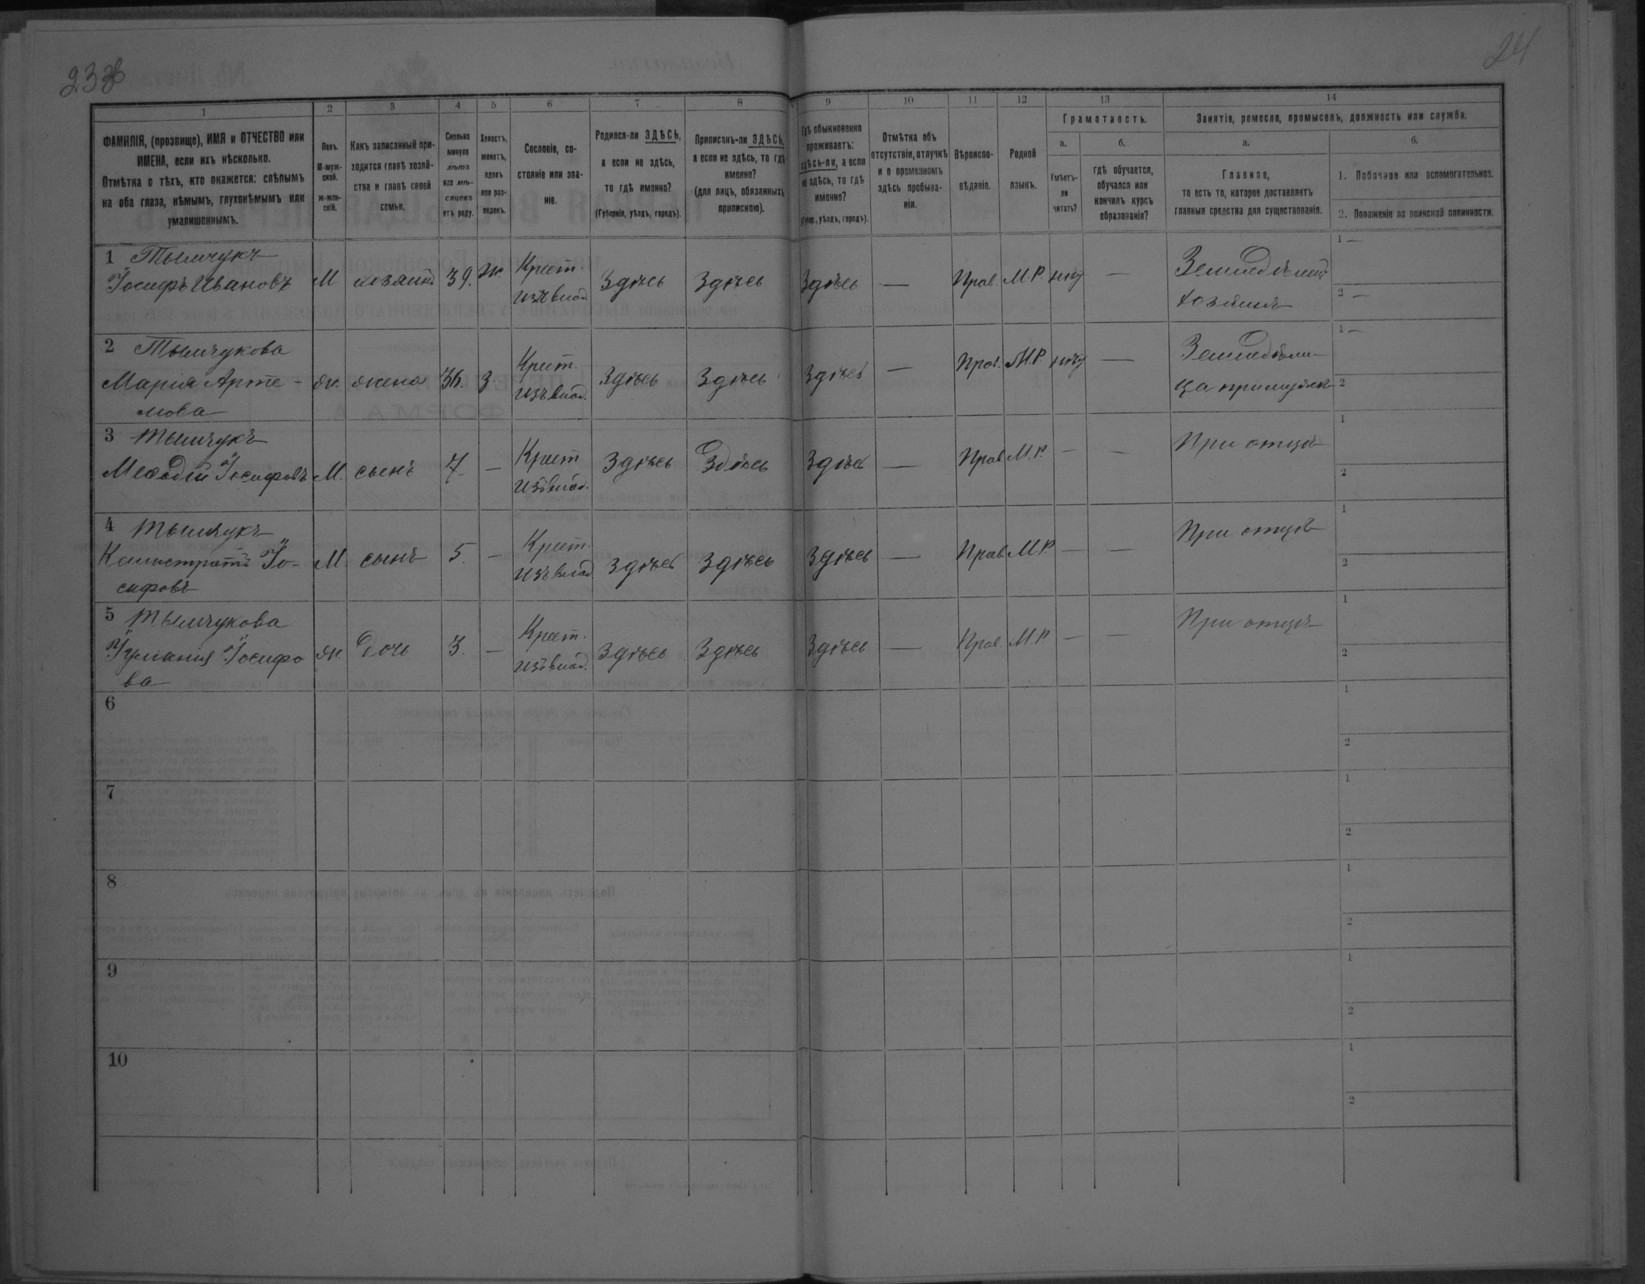 23 об
24
1 2 3 4 5 6 7 8 9 10 11 12 13 14
ФАМИЛІЯ, (прозвище), ИМЯ и ОТЧЕСТВО или
ИМЕНА, если ихъ нѣсколько.
Отмѣтка о тѣхъ, кто окажется: слѣпымъ
на оба глаза, нѣмымъ, глухонѣмымъ или
умалишеннымъ.
Полъ.
М-муж-
ской.
ж-жен-
скій.
Какъ записанный при-
ходится главѣ хозяй-
ства и главѣ своей
семьи.
Сколько
минуло
лѣтъ
или мѣ-
сяцевъ
отъ роду.
Холостъ,
женатъ,
вдовъ
или раз-
веденъ.
Сословіе, со-
стояніе или зва-
ніе.
Родился-ли ЗДѢСЬ,
а если не здѣсь,
то гдѣ именно?
(Губернія, уѣздъ, городъ).
Приписанъ-ли ЗДѢСЬ,
а если не здѣсь, то гдѣ
именно?
(для лицъ, обязанныхъ
припискою).
Гдѣ обыкновенно
проживаетъ:
здѣсь-ли, а если
не здѣсь, то гдѣ
именно?
(Губ., уѣздъ, городъ).
Отмѣтка объ
отсутствіи, отлучкѣ
и о временномъ
здѣсь пребыва-
ніи.
Вѣроиспо-
вѣданіе.
Родной
языкъ.
Грамотность.
а.
Умѣетъ-
ли
читать?
б.
гдѣ обучается,
обучался или
кончилъ курсъ
образованія?
Занятіе, ремесло, промыселъ, должность или служба.
а.
Главное,
то есть то, которое доставляетъ
главныя средства для существованія.
б.
1. Побочное или вспомогательное.
2. Положеніе по воинской повинности.
1 Тымчукъ
Іосифъ Ивановъ М хозяинъ 39. ж Крест.
изъ влад. Здѣсь Здѣсь Здѣсь — Прав. М.Р. нѣтъ — Земледѣлецъ
хозяинъ
1 —
2 —
2 Тымчукова
Марія Арте-
мова ж. жена 36. З. Крест.
изъ влад. Здѣсь Здѣсь Здѣсь — Прав. М.Р. нѣтъ — Земледѣли-
ца при мужѣ
1 —
2
3 Тымчукъ
Меѳодій Іосифовъ М. сынъ 7. — Крест.
изъ влад. Здѣсь Здѣсь Здѣсь — Прав. М.Р. — — При отцѣ
1
2
4 Тымчукъ
Калистратъ Іо-
сифовъ М. сынъ 5. — Крест.
изъ влад. Здѣсь Здѣсь Здѣсь — Прав. М.Р. — — При отцѣ
1
2
5 Тымчукова
Іуліанія Іосифо
ва ж. Дочь 3. — Крест.
изъ влад. Здѣсь Здѣсь Здѣсь — Прав. М.Р. — — При отцѣ
1
2
6
1
2
7
1
2
8
1
2
9
1
2
10
1
2